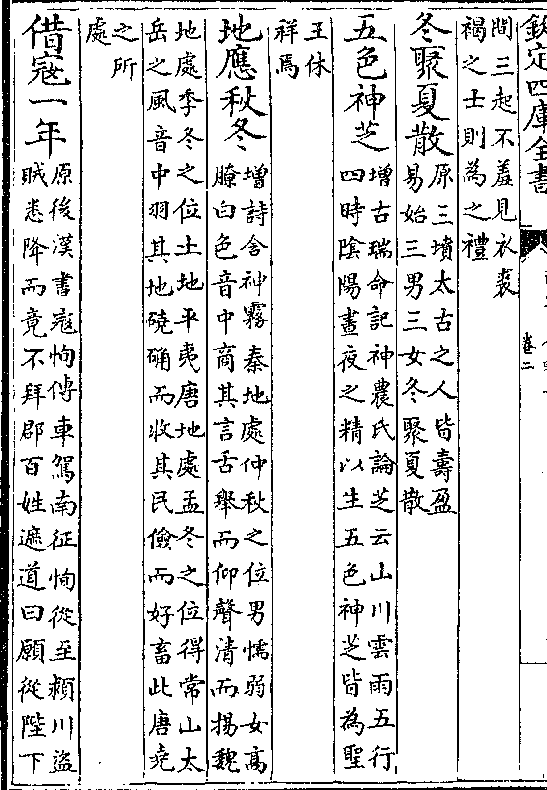 欽定四庫全書
卷二
間三起不羞見衣裘
褐之士則為之禮
冬聚夏散
原三墳太古之人皆壽盈
易始三男三女冬聚夏散
五色神芝
增古瑞命記神農氏論芝云山川雲雨五行
四時陰陽晝夜之精以生五色神芝皆為聖
王休
祥焉
地應秋冬
增詩含神霧秦地處仲秋之位男懦弱女高
瞭白色音中商其言舌舉而仰聲清而揚魏
地處季冬之位土地平夷唐地處孟冬之位得常山太
岳之風音中羽其地磽确而收其民儉而好畜此唐堯
之所
處
借寇一年
原後漢書寇恂傳車駕南征恂從至潁川盜
賊悉降而竟不拜郡百姓遮道曰願從陛下